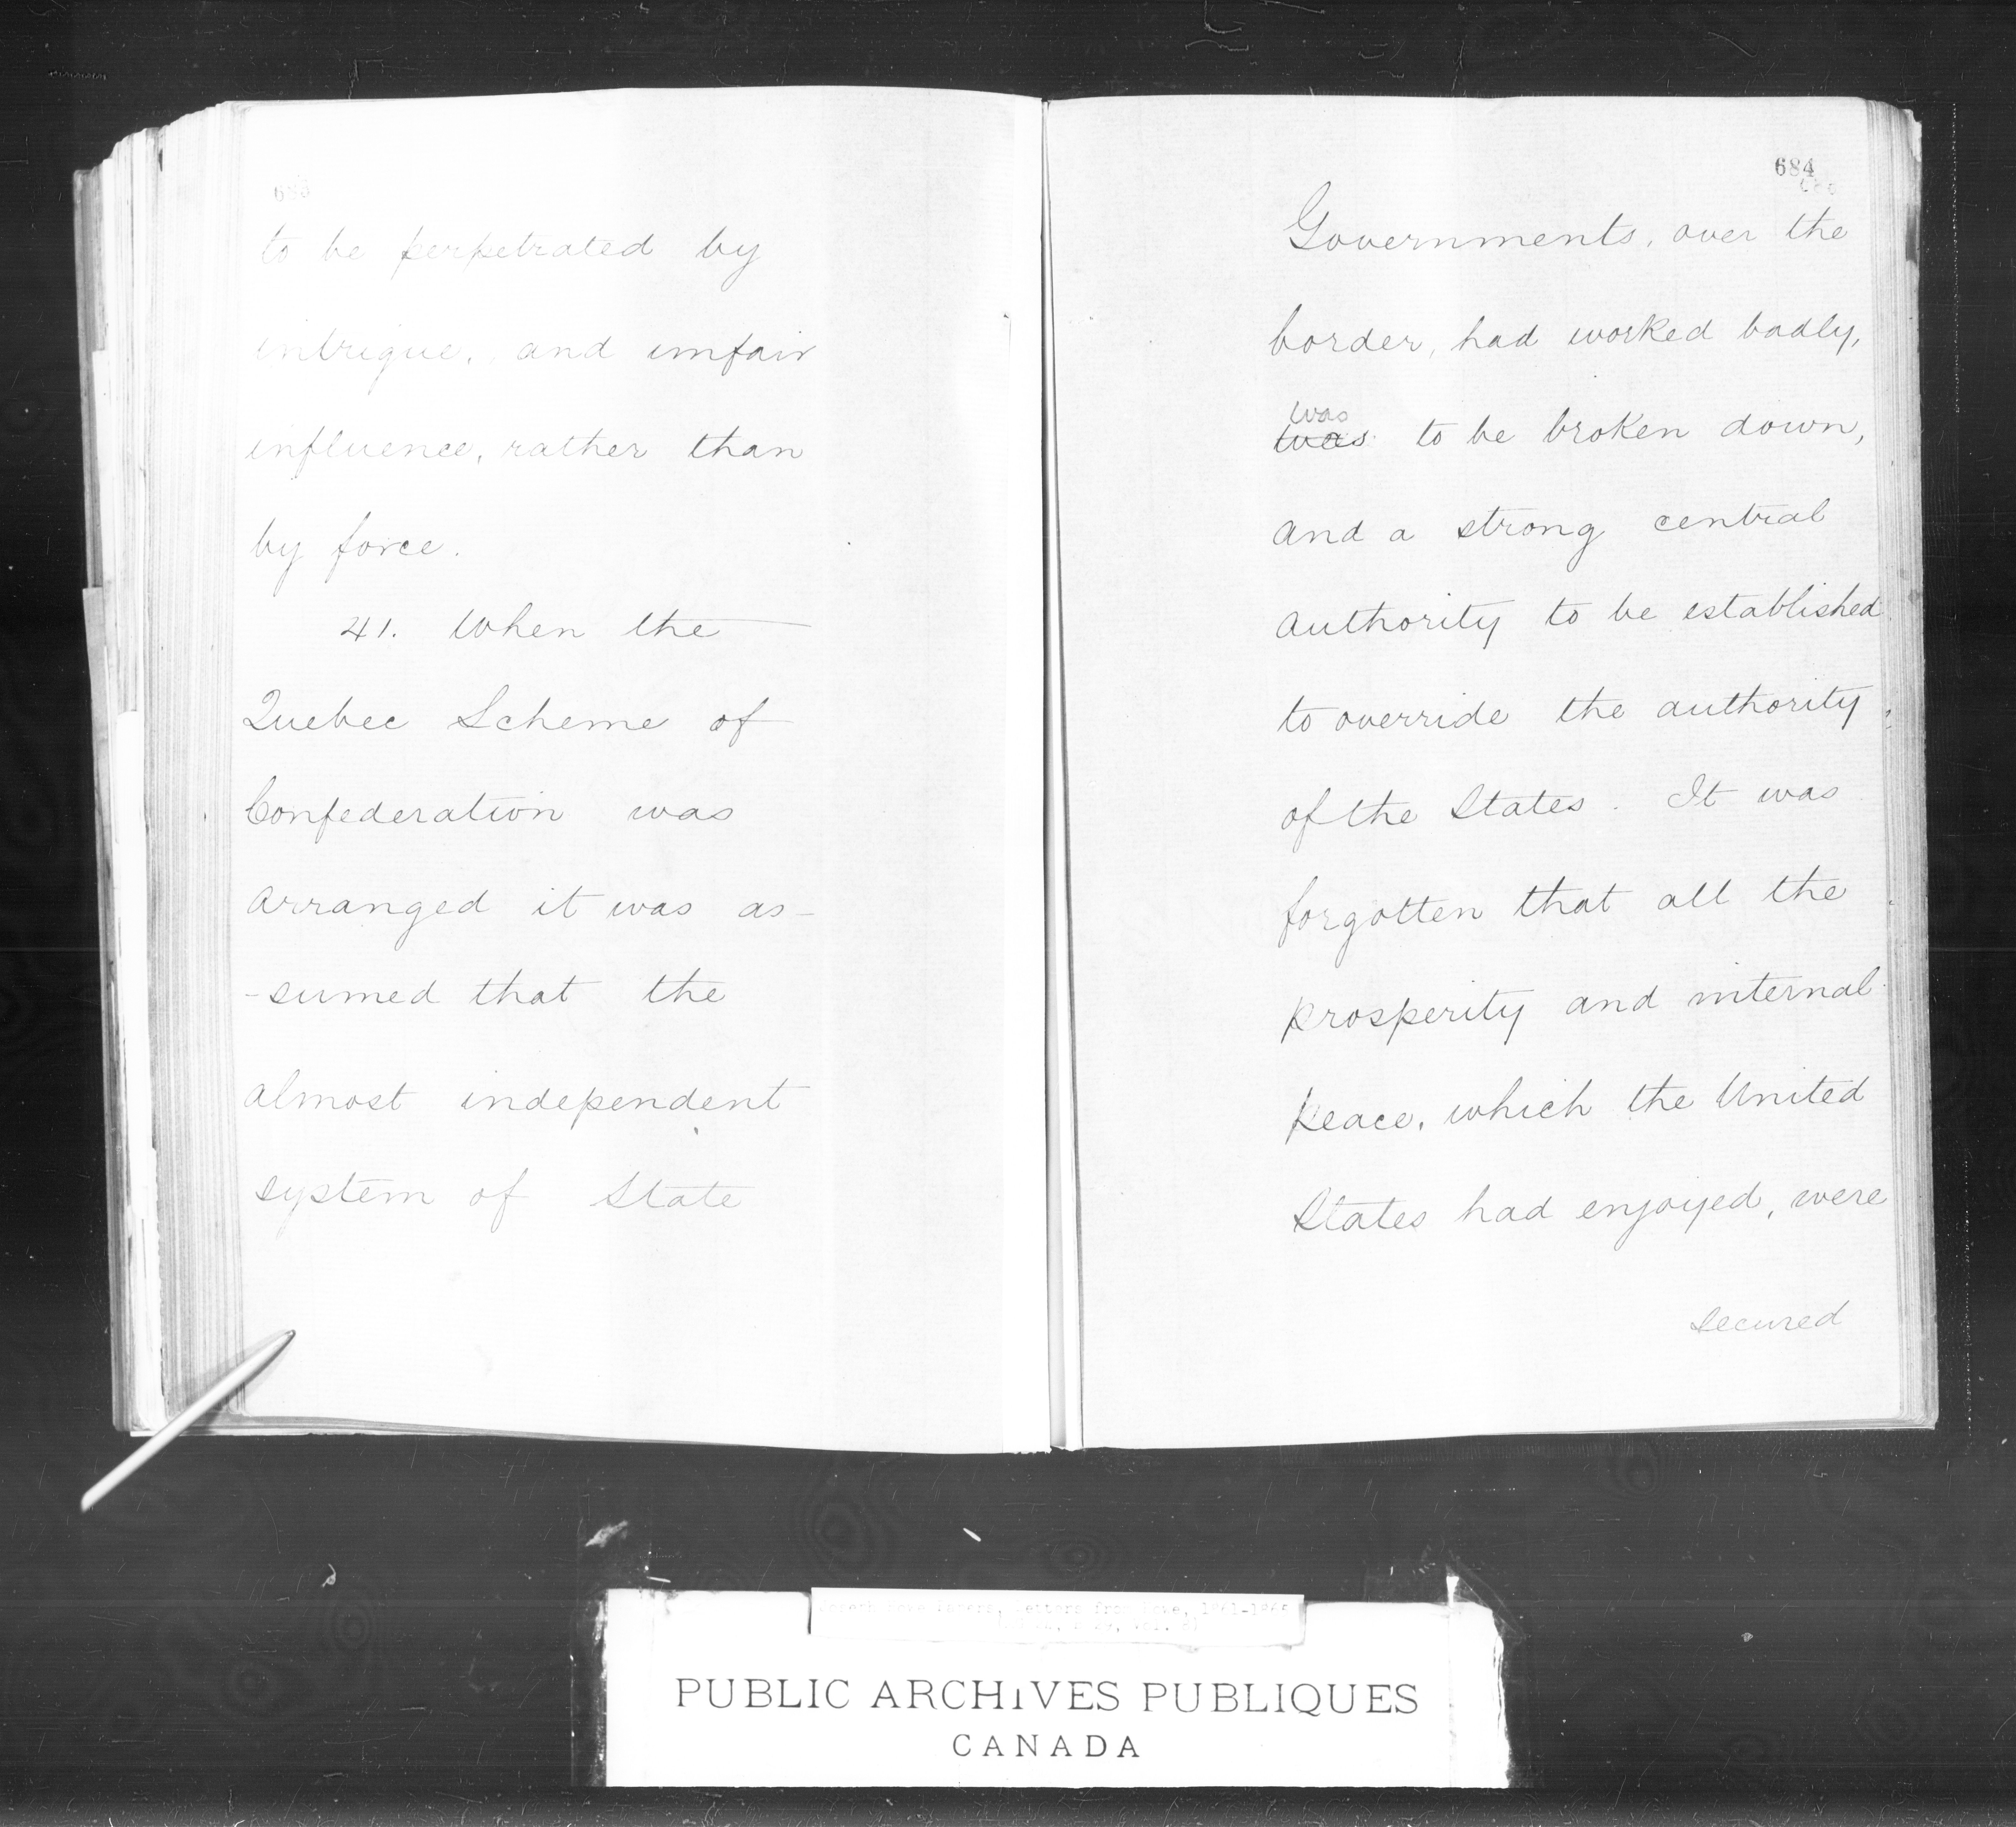 683
to be perpetrated by
intrigue, and unfair
influence, rather than
by force.
41. When the
Quebec Scheme of
Confederation was
arranged it was as-
-sumed that the
almost independent
system of State
684
Governments, over the
border, had worked badly,
was
was to be broken down,
and a strong central
authority to be established
to override the authority
of the States. It was
forgotten that all the
prosperity and internal
peace, which the United
States had enjoyed, were
secured
Joseph Howe Papers, Letters from Howe, 1861-186
PUBLIC ARCHIVES PUBLIQUES
CANADA